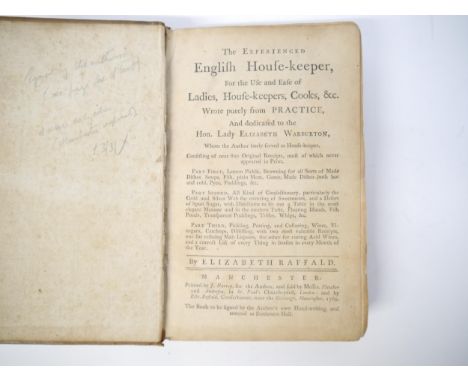 The EXPERIENCED
English House-keeper,
For the Use and Ease of
Ladies, House-keepers, Cooks, &c.
Wrote purely from PRACTICE,
And dedicated to the
Hon. Lady ELIZABETH WARBURTON,
Whom the Author lately served as House-keeper.
Consisting of near 800 Original Receipts, most of which never
appeared in Print.
PART FIRST, Lemon Pickle, Browning for all Sorts of Made
Dishes, Soups, Fish, plain Meat, Game, Made Dishes both hot
and cold, Pyes, Puddings, &c.
PART SECOND, All Kind of Confectionary, particularly the
Gold and Silver Web for covering of Sweetmeats, and a Desert
of Spun Sugar, with Directions to set out a Table in the most
elegant Manner and in the modern Taste, Floating Islands, Fish
Ponds, Transparent Puddings, Trifles, Whips, &c.
PART THIRD, Pickling, Potting, and Collaring, Wines, Vi-
negars, Catchups, Distilling, with two most valuable Receipts,
one for refining Malt Liquors, the other for curing Acid Wines,
and a correct List of every Thing in Season in every Month of
the Year.
By ELIZABETH RAFFALD.
MANCHESTER:
Printed by J. Harrop, for the Author, and sold by Messrs. Fletcher
and Anderson, in St. Paul's Church-yard, London; and by
Eliz. Raffald, Confectioner, near the Exchange, Manchester, 1769.
The Book to be signed by the Author's own Hand-writing, and
entered at Stationers Hall.